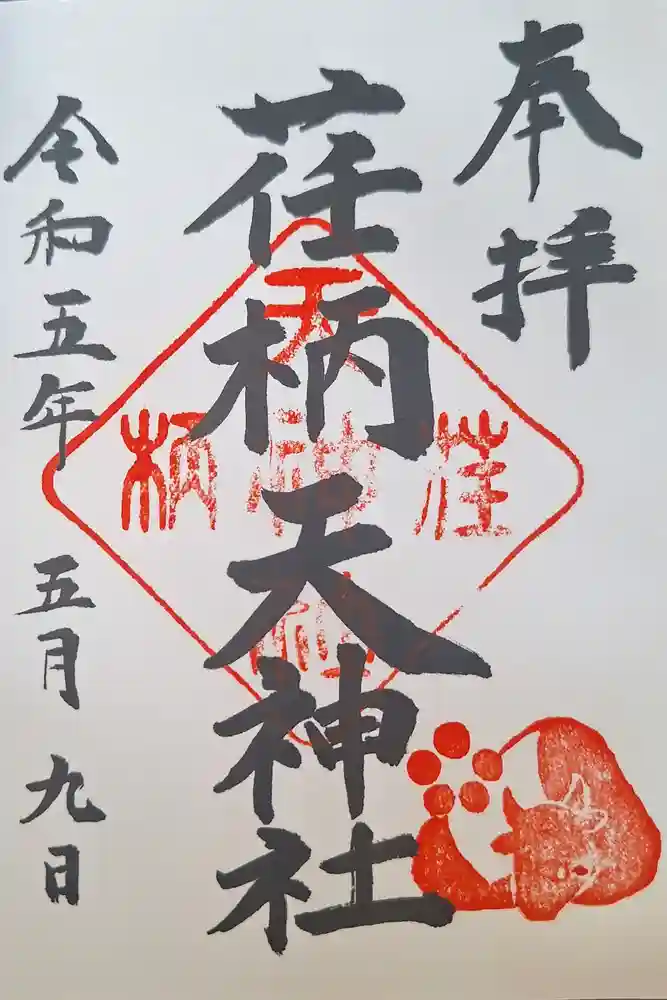 奉拝
荏柄天神社
令和五年 五月 九日
荏
天神社
柄